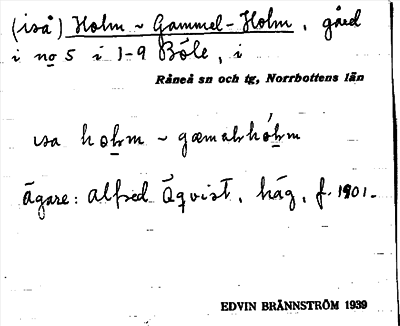 (iså) Holm ~ Gammel-Holm, gård
i no 5 i 1-9 Böle, i
Råneå sn och tg, Norrbottens län
ägare: Alfred Åqvist, häg, f. 1901.
EDVIN BRÄNNSTRÖM 1939